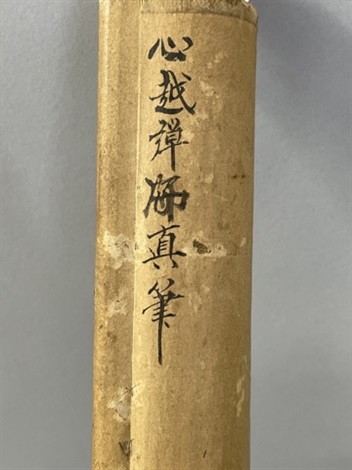 心越禅師真筆